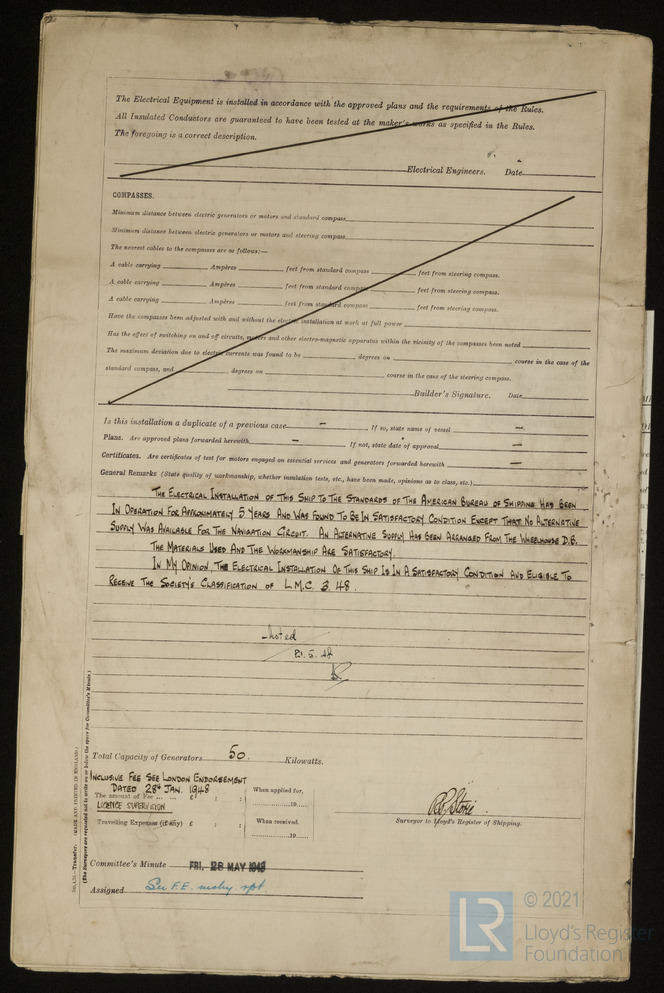 The Electrical Equipment is installed in accordance with the approved plans and the requirements of the Rules.
All Insulated Conductors are guaranteed to have been tested at the maker's works as specified in the Rules.
The foregoing is a correct description.
Electrical Engineers. Date
COMPASSES.
Minimum distance between electric generators or motors and standard compass
Minimum distance between electric generators or motors and steering compass
The nearest cables to the compasses are as follows:—
A cable carrying Ampères feet from standard compass feet from steering compass.
A cable carrying Ampères feet from standard compass feet from steering compass.
A cable carrying Ampères feet from standard compass feet from steering compass.
Have the compasses been adjusted with and without the electric installation at work at full power
Has the effect of switching on and off circuits, motors and other electro-magnetic apparatus within the vicinity of the compasses been noted
The maximum deviation due to electric currents was found to be degrees on course in the case of the
standard compass, and degrees on course in the case of the steering compass.
Builder's Signature. Date
Is this installation a duplicate of a previous case – If so, state name of vessel –
Plans. Are approved plans forwarded herewith – If not, state date of approval –
Certificates. Are certificates of test for motors engaged on essential services and generators forwarded herewith –
General Remarks (State quality of workmanship, whether insulation tests, etc., have been made, opinions as to class, etc.)
THE ELECTRICAL INSTALLATION OF THIS SHIP TO THE STANDARDS OF THE AMERICAN BUREAU OF SHIPPING HAS BEEN
IN OPERATION FOR APPROXIMATELY 5 YEARS AND WAS FOUND TO BE IN SATISFACTORY CONDITION EXCEPT THAT NO ALTERNATIVE
SUPPLY WAS AVAILABLE FOR THE NAVIGATION CIRCUIT. AN ALTERNATIVE SUPPLY HAS BEEN ARRANGED FROM THE WHEELHOUSE D.B.
THE MATERIALS USED AND THE WORKMANSHIP ARE SATISFACTORY.
IN MY OPINION, THE ELECTRICAL INSTALLATION OF THIS SHIP IS IN A SATISFACTORY CONDITION AND ELIGIBLE TO
RECEIVE THE SOCIETY'S CLASSIFICATION OF L.M.C. 3.48.
Noted
21.5.48
Total Capacity of Generators 50. Kilowatts.
INCLUSIVE FEE SEE LONDON ENDORSEMENT
DATED 28th JAN. 1948
The amount of Fee ... £ : :
LICENCE SUPERVISION
Travelling Expenses (if any) £ : :
When applied for,
19
When received.
19
Surveyor to Lloyd's Register of Shipping.
Committee's Minute FRI. 28 MAY 1948
Assigned See F.E. mchy rpt.
Transfer. (MADE AND PRINTED IN ENGLAND.)
(The Surveyors are requested not to write on or below the space for Committee's Minute.)
© 2021
Lloyd's Register
Foundation
LR